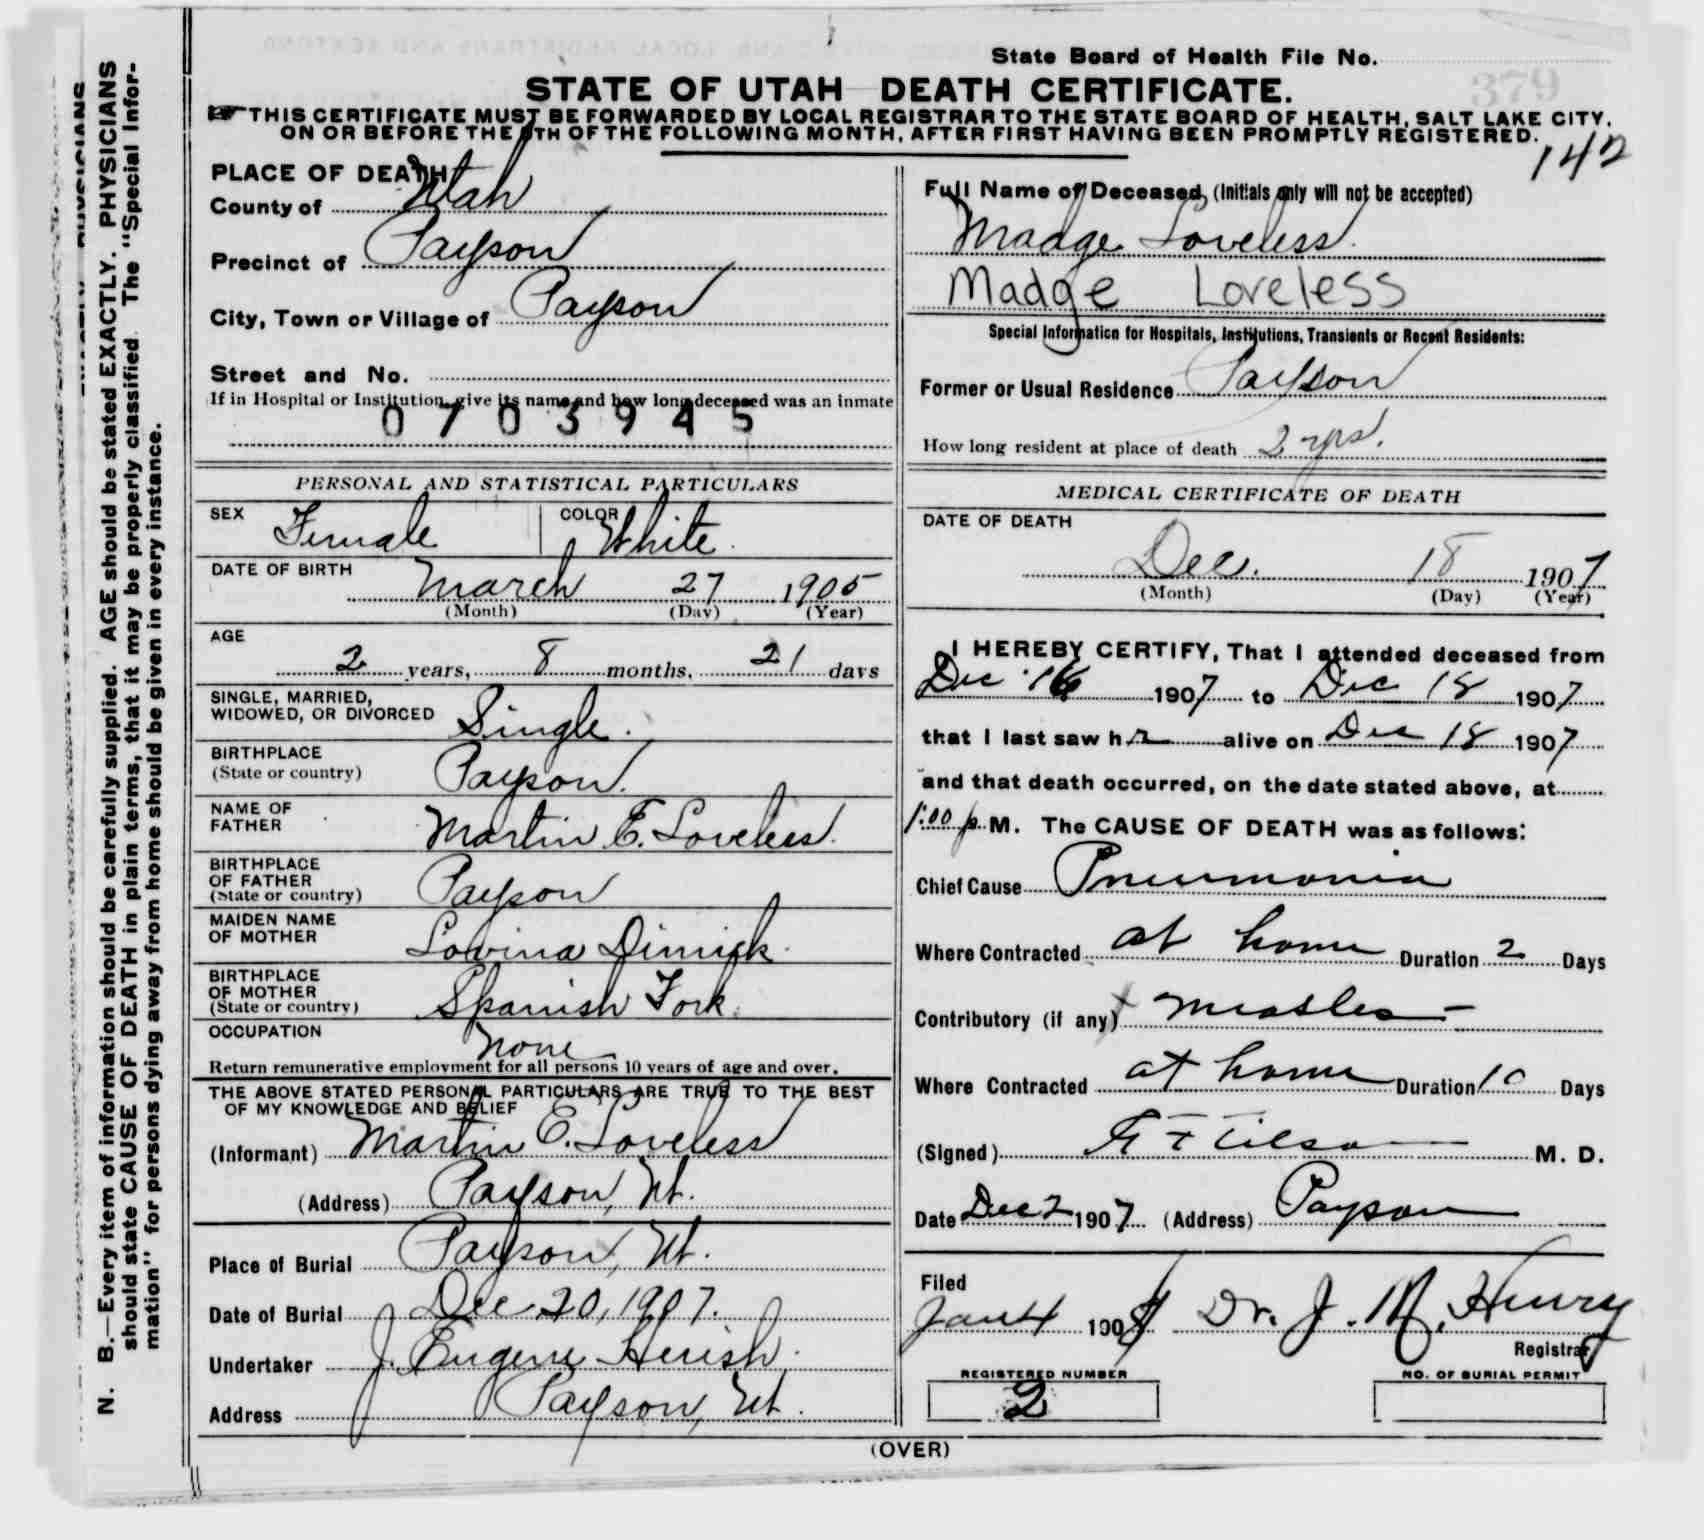 State Board of Health File No.
379
STATE OF UTAH DEATH CERTIFICATE.
THIS CERTIFICATE MUST BE FORWARDED BY LOCAL REGISTRAR TO THE STATE BOARD OF HEALTH, SALT LAKE CITY,
ON OR BEFORE THE 5TH OF THE FOLLOWING MONTH, AFTER FIRST HAVING BEEN PROMPTLY REGISTERED.
142
N. B.—Every item of information should be carefully supplied. AGE should be stated EXACTLY. PHYSICIANS
should state CAUSE OF DEATH in plain terms, that it may be properly classified. The "Special Infor-
mation" for persons dying away from home should be given in every instance.
PLACE OF DEATH
County of Utah
Precinct of Payson
City, Town or Village of Payson
Street and No.
If in Hospital or Institution, give its name and how long deceased was an inmate
0703945
PERSONAL AND STATISTICAL PARTICULARS
SEX Female COLOR White.
DATE OF BIRTH
March 27 1905
(Month) (Day) (Year)
AGE
2 years, 8 months, 21 days
SINGLE, MARRIED,
WIDOWED, OR DIVORCED Single.
BIRTHPLACE
(State or country) Payson.
NAME OF
FATHER Martin E. Loveless.
BIRTHPLACE
OF FATHER
(State or country) Payson
MAIDEN NAME
OF MOTHER Lovina Dimick.
BIRTHPLACE
OF MOTHER
(State or country) Spanish Fork.
OCCUPATION
None
Return remunerative employment for all persons 10 years of age and over.
THE ABOVE STATED PERSONAL PARTICULARS ARE TRUE TO THE BEST
OF MY KNOWLEDGE AND BELIEF
(Informant) Martin E. Loveless
(Address) Payson, Ut.
Place of Burial Payson, Ut.
Date of Burial Dec 20, 1907.
Undertaker J. Eugene Huish.
Address Payson, Ut.
Full Name of Deceased, (Initials only will not be accepted)
Madge Loveless.
Madge Loveless
Special Information for Hospitals, Institutions, Transients or Recent Residents:
Former or Usual Residence Payson
How long resident at place of death 2 yrs.
MEDICAL CERTIFICATE OF DEATH
DATE OF DEATH
Dec. 18 1907
(Month) (Day) (Year)
I HEREBY CERTIFY, That I attended deceased from
Dec 16 1907 to Dec 18 1907
that I last saw h r alive on Dec 18 1907
and that death occurred, on the date stated above, at
1:00 p. M. The CAUSE OF DEATH was as follows:
Chief Cause Pneumonia
Where Contracted at home Duration 2 Days
Contributory (if any) x measles -
Where Contracted at home Duration 10 Days
(Signed) M. D.
Date Dec 2 1907 (Address) Payson
Filed
Jan 4 1908 Dr. J. M. Henry
Registrar
REGISTERED NUMBER
2
NO. OF BURIAL PERMIT
(OVER)